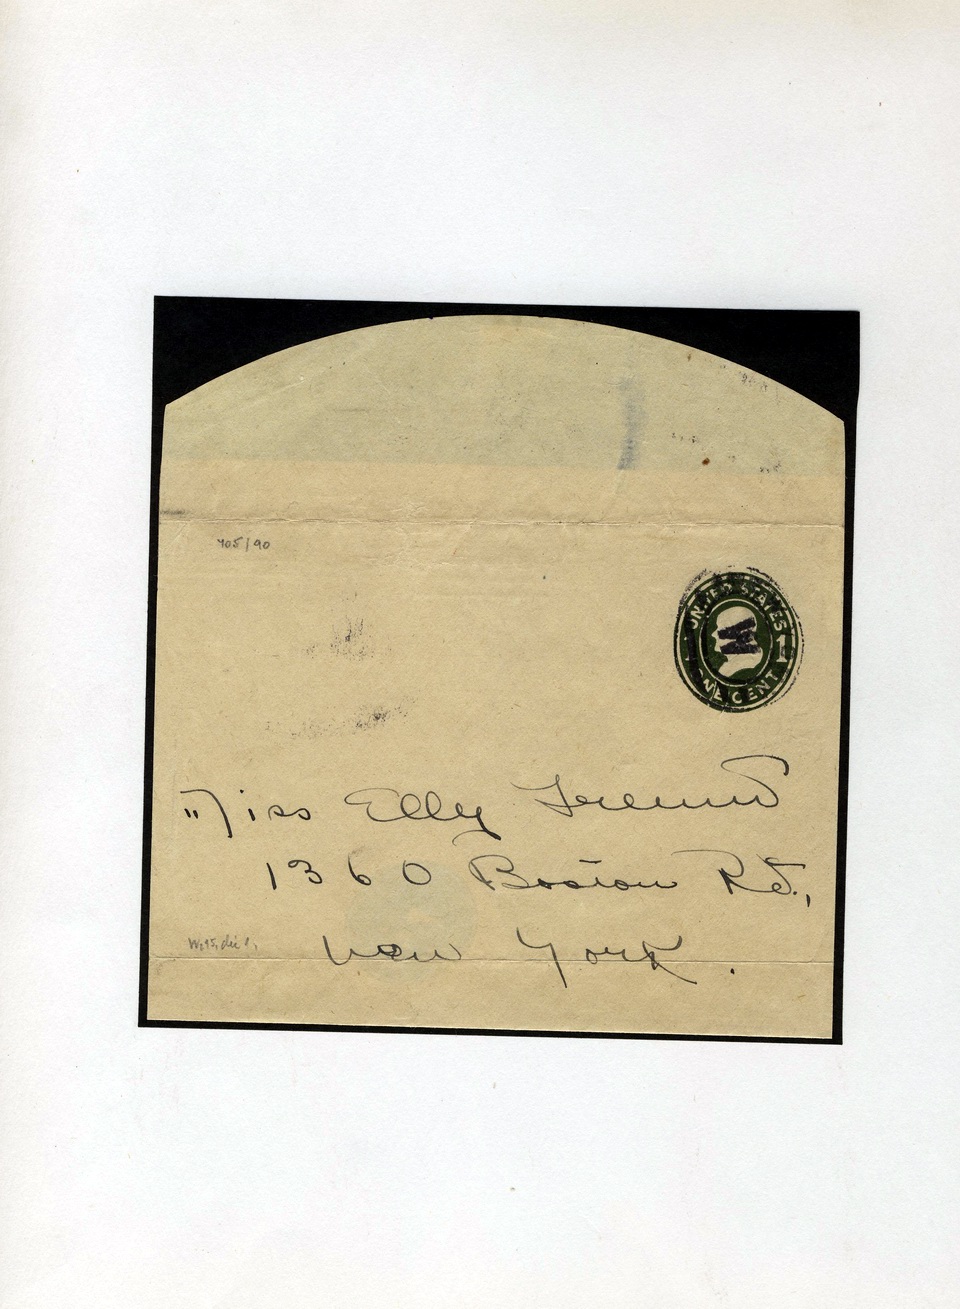 705/90
UNITED STATES
1
ONE CENT
W
Miss Elly
1360 Boston Rd.,
W, 45, die 1,
New York.